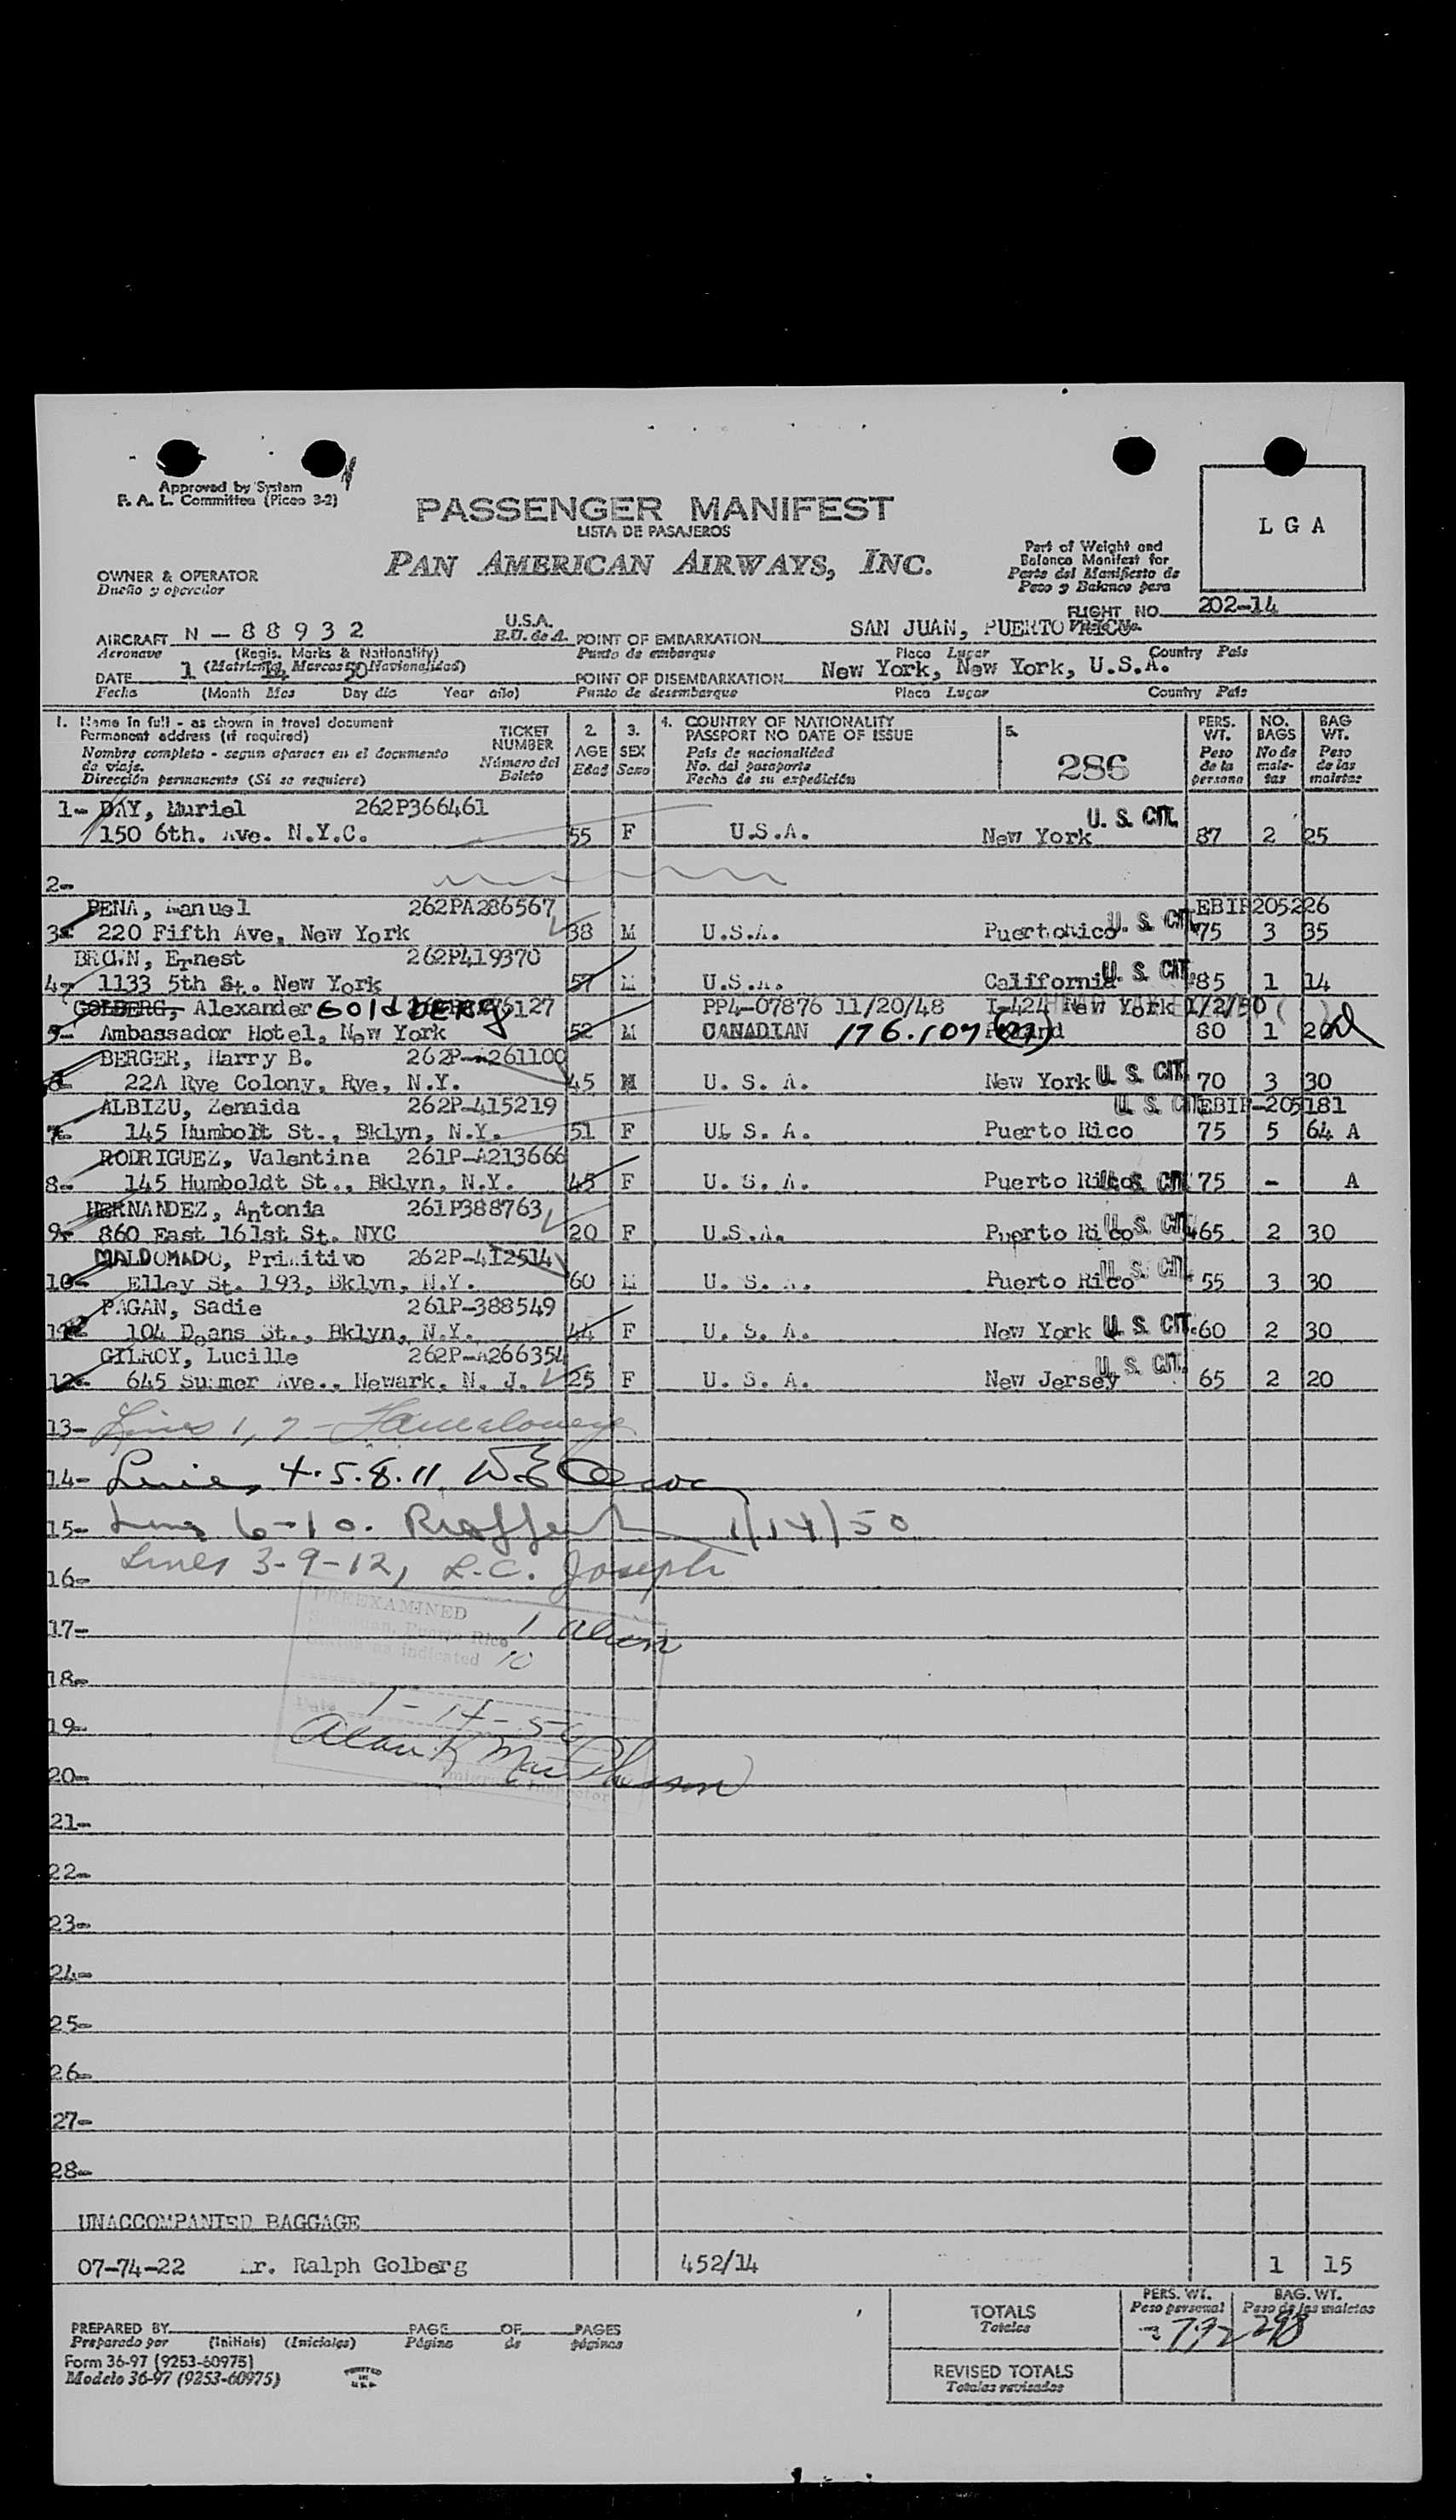 Approved by System
F. A. L. Committee (Picao 3-2)
PASSENGER MANIFEST
LISTA DE PASAJEROS
PAN AMERICAN AIRWAYS, INC.
L G A
Part of Weight and
Balance Manifest for
Parte del Manifiesto de
Peso y Balance para
OWNER & OPERATOR
Dueño y operador
FLIGHT NO. 202-14
AIRCRAFT N - 8 8 9 3 2 U.S.A. POINT OF EMBARKATION SAN JUAN, PUERTO RICO
Aeronave (Regis. Marks & Nationality) E.U. de A. Punto de embarque Place Lugar Country País
(Matricula, Marcas Nacionalidad)
DATE 1 14 50 POINT OF DISEMBARKATION New York, New York, U.S.A.
Fecha (Month Mes Day día Year año) Punto de desembarque Place Lugar Country País
1. Name in full - as shown in travel document
Permanent address (if required)
Nombre completo - segun aparece en el documento
de viaje.
Dirección permanente (Si se requiere)
TICKET
NUMBER
Número del
Boleto
2.
AGE
Edad
3.
SEX
Sexo
4. COUNTRY OF NATIONALITY
PASSPORT NO DATE OF ISSUE
País de nacionalidad
No. del pasaporte
Fecha de su expedición
5.
286
PERS.
WT.
Peso
de la
persona
NO.
BAGS
No de
male-
tas
BAG
WT.
Peso
de las
maletas
1- DAY, Muriel 262P366461 U. S. CIT.
150 6th. Ave. N.Y.C. 55 F U.S.A. New York 87 2 25
2-
PENA, Manuel 262PA286567 EBIP205226
3- 220 Fifth Ave, New York 38 M U.S.A. Puerto Rico U. S. CIT. 75 3 35
BROWN, Ernest 262P419370
4- 1133 5th St. New York 57 M U.S.A. California U. S. CIT. 85 1 14
GOLBERG, Alexander GOldBERg 127 PP4-07876 11/20/48 I-424 New York 1/2/50
5- Ambassador Hotel, New York 52 M CANADIAN 176.107 Poland 80 1 20
BERGER, Harry B. 262P-A261100
6- 22A Rye Colony, Rye, N.Y. 45 M U. S. A. New York U. S. CIT. 70 3 30
ALBIZU, Zemaida 262P-415219 U. S. CIT. EBIP-205181
7- 145 Humbolt St., Bklyn, N.Y. 51 F U. S. A. Puerto Rico 75 5 64 A
RODRIGUEZ, Valentina 261P-A213666
8- 145 Humboldt St., Bklyn, N.Y. 45 F U. S. A. Puerto Rico U. S. CIT. 75 - A
HERNANDEZ, Antonia 261P388763
9- 860 East 161st St. NYC 20 F U.S.A. Puerto Rico U. S. CIT. 65 2 30
MALDOMADO, Primitivo 262P-412514
10- Elley St. 193, Bklyn, N.Y. 60 M U. S. A. Puerto Rico U. S. CIT. 55 3 30
PAGAN, Sadie 261P-388549
11- 104 Deans St., Bklyn, N.Y. 44 F U. S. A. New York U. S. CIT. 60 2 30
GILROY, Lucille 262P-A266354
12- 645 Summer Ave., Newark, N. J. 25 F U. S. A. New Jersey U. S. CIT. 65 2 20
13- Lines 1, 7 -
14- Lines 4.5.8.11
15- Lines 6-10. 1/14/50
16- Lines 3-9-12, L.C. Joseph
PREEXAMINED
17- San Juan, Puerto Rico 1 alien
indicated 10
18-
Date 1-14-50
19- Alan K MacPherson
20- Immigrant Inspector
21-
22-
23-
24-
25-
26-
27-
28-
UNACCOMPANIED BAGGAGE
07-74-22 Mr. Ralph Golberg 452/14 1 15
PREPARED BY PAGE OF PAGES
Preparado por (Initials) (Iniciales) Página de páginas
Form 36-97 (9253-60975)
Modelo 36-97 (9253-60975)
PRINTED
IN
U.S.A.
TOTALS
Totales
PERS. WT.
Peso personal
792
BAG. WT.
Peso de las maletas
298
REVISED TOTALS
Totales revisados